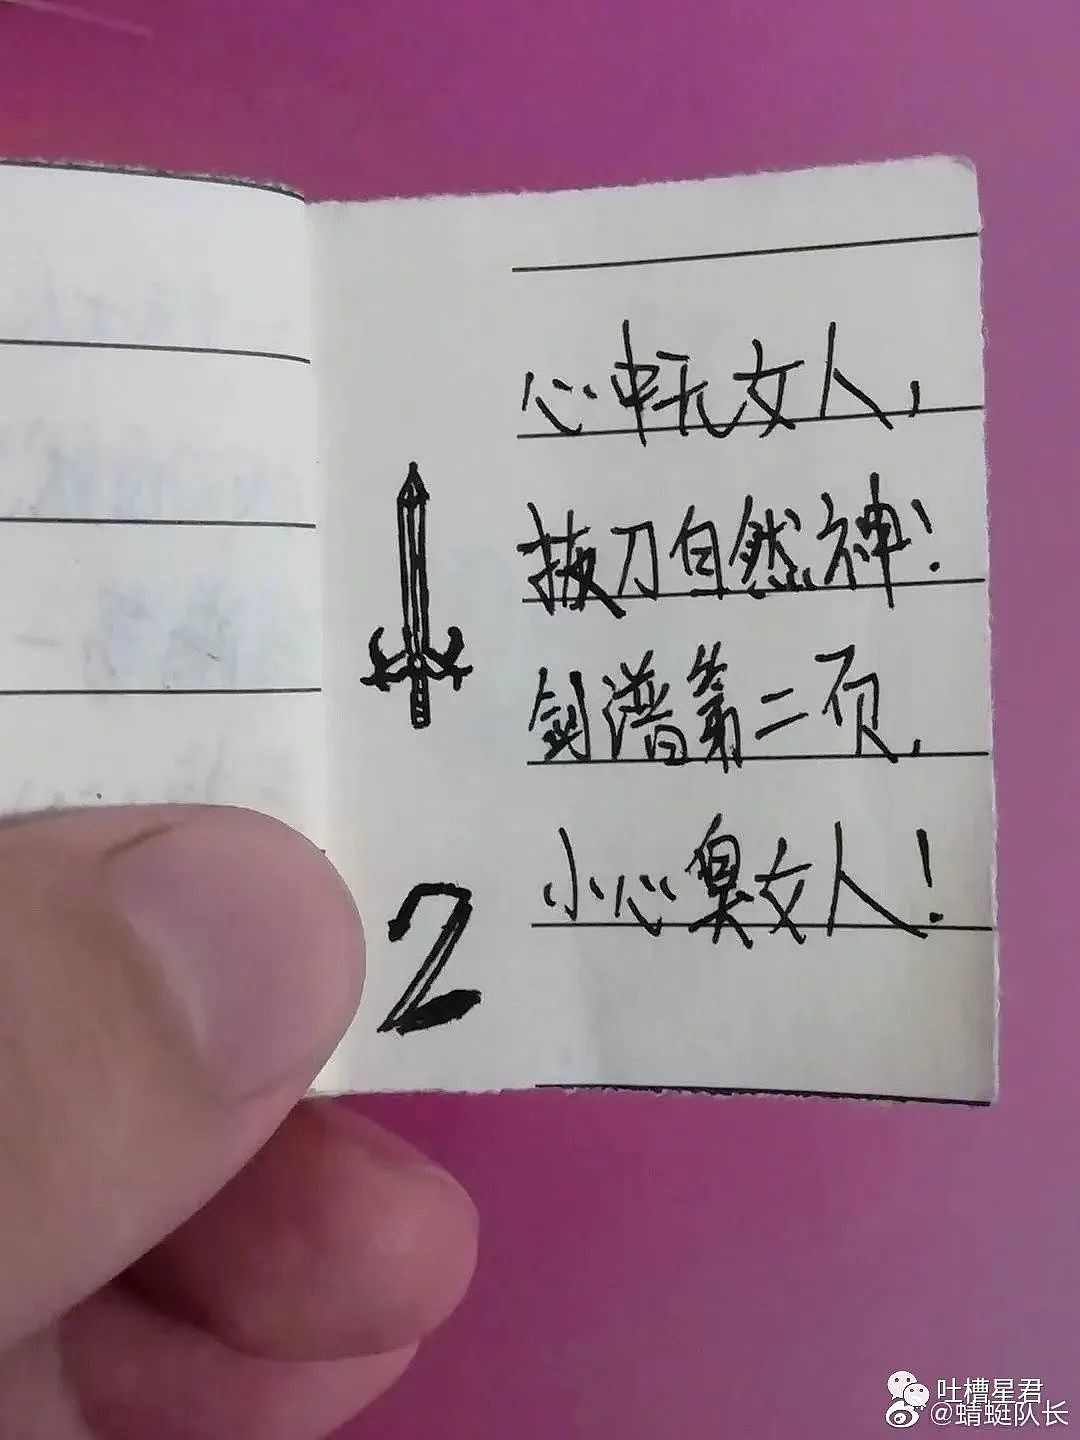 心中无女人,
拔刀自然神!
剑谱第二页,
小心臭女人!
2
吐槽星君
@蜻蜓队长